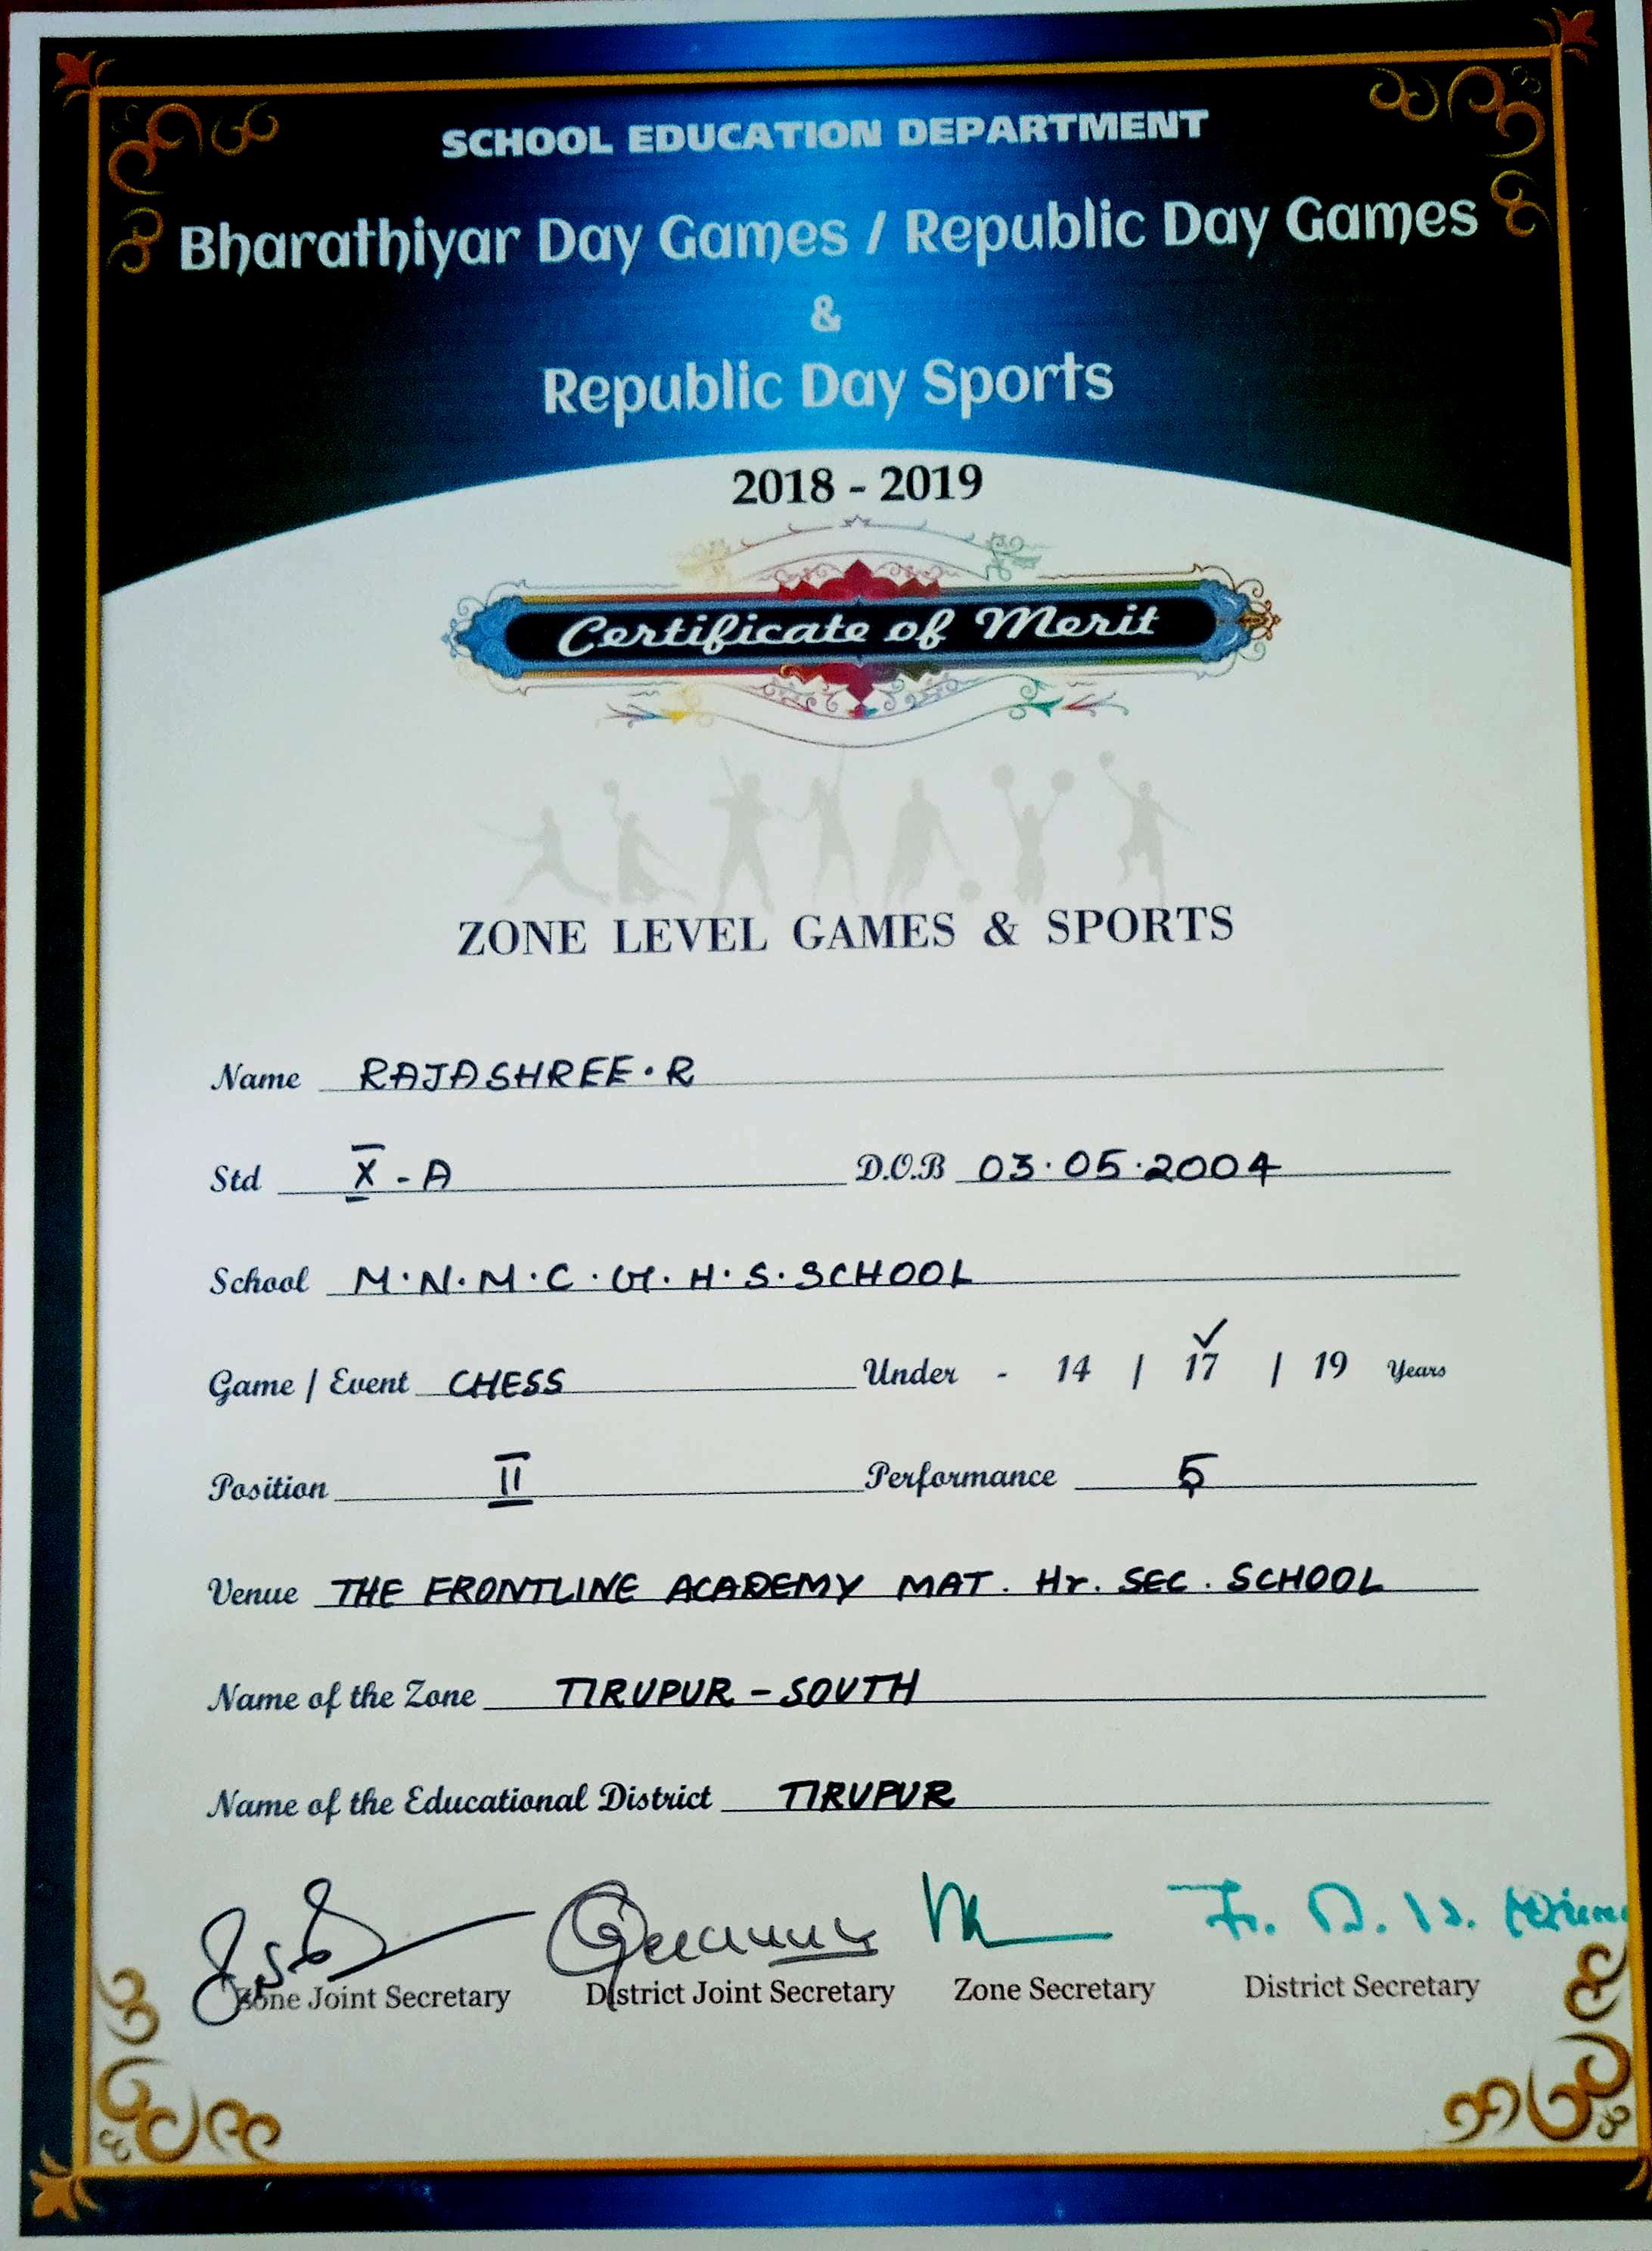 SCHOOL EDUCATION DEPARTMENT
Bharathiyar Day Games / Republic Day Games
&
Republic Day Sports
2018 - 2019
Certificate of Merit
ZONE LEVEL GAMES & SPORTS
Name RAJASHREE. R
Std X - A D.O.B 03.05.2004
School M.N.M.C.G.H.S.SCHOOL
Game / Event CHESS Under - 14 / 17 ✓ / 19 Years
Position II Performance 5
Venue THE FRONTLINE ACADEMY MAT. Hr. SEC. SCHOOL
Name of the Zone TIRUPUR - SOUTH
Name of the Educational District TIRUPUR
Zone Joint Secretary District Joint Secretary Zone Secretary District Secretary